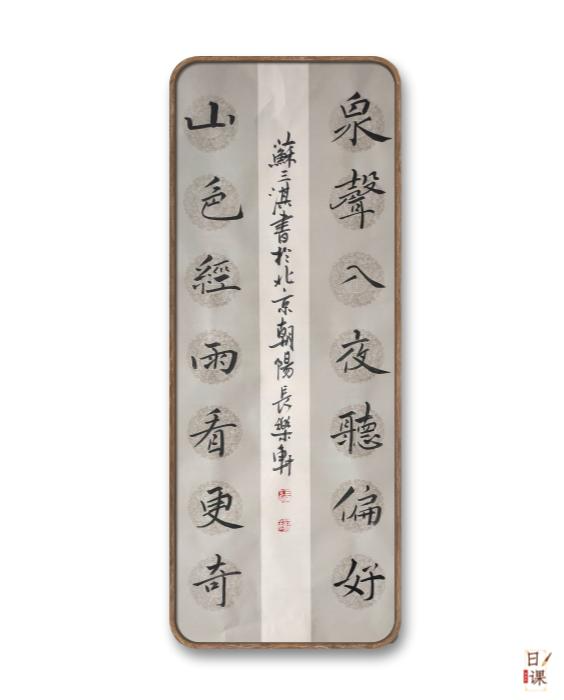 泉聲入夜聽偏好
蘇三淇書於北京朝陽長樂軒
山色經雨看更奇
日课